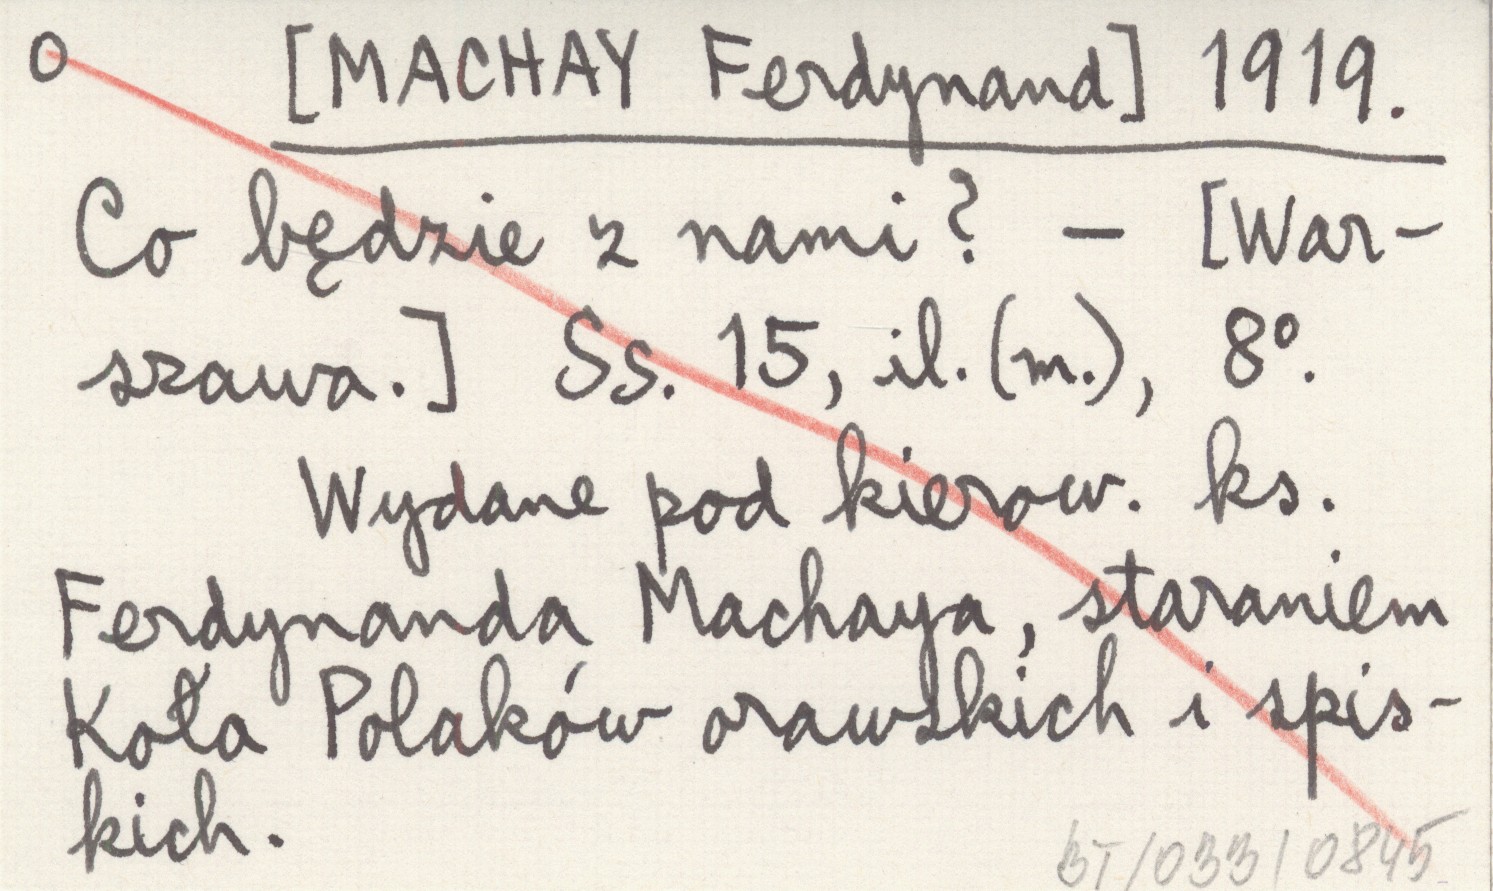 O [MACHAY Ferdynand] 1919.
Co będzie z nami? – [War-
szawa.] Ss. 15, il. (m.), 8º.
Wydane pod kierow. ks.
Ferdynanda Machaya, staraniem
Koła Polaków orawskich i spis-
kich.
BT/033/0845